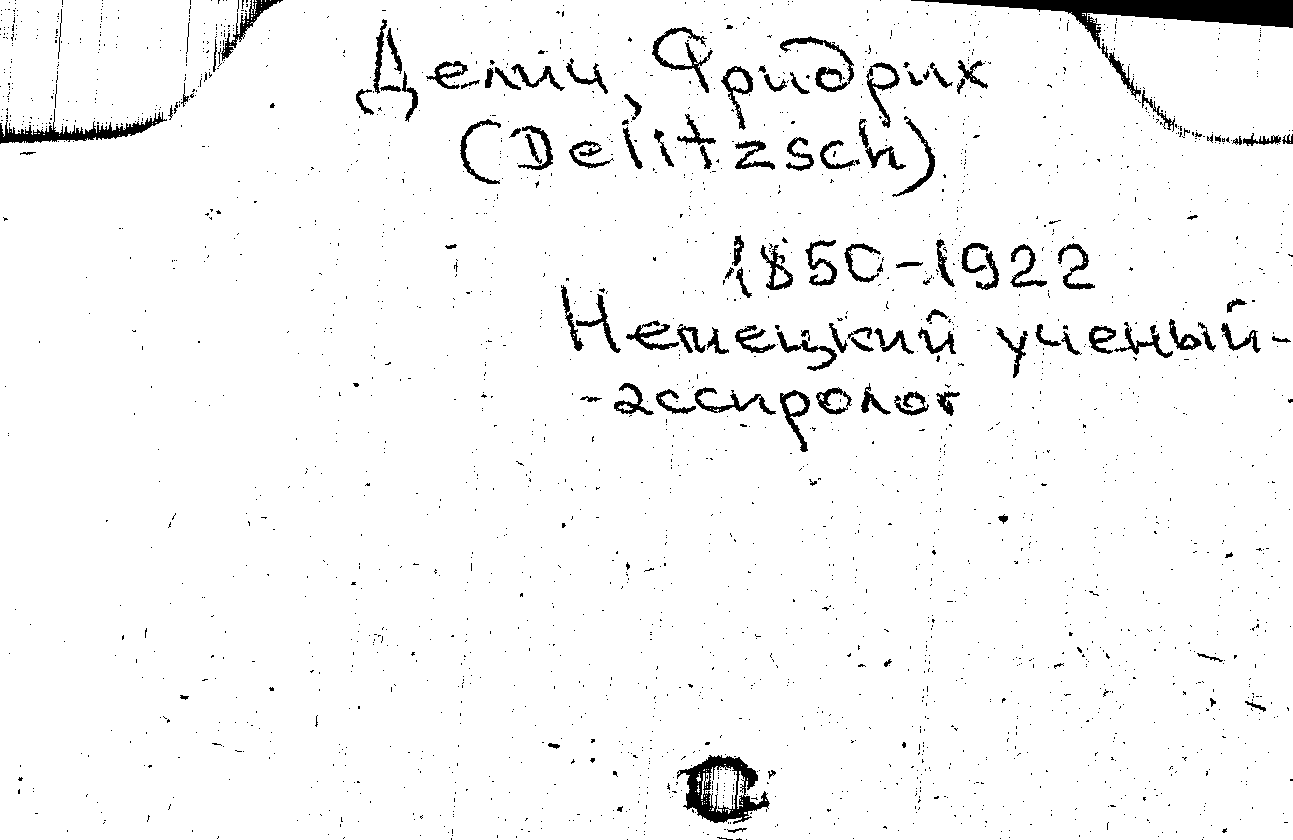 Делич, Фридрих
(Delitzsch)
1850-1922
Немецкий ученый-
-ассиролог